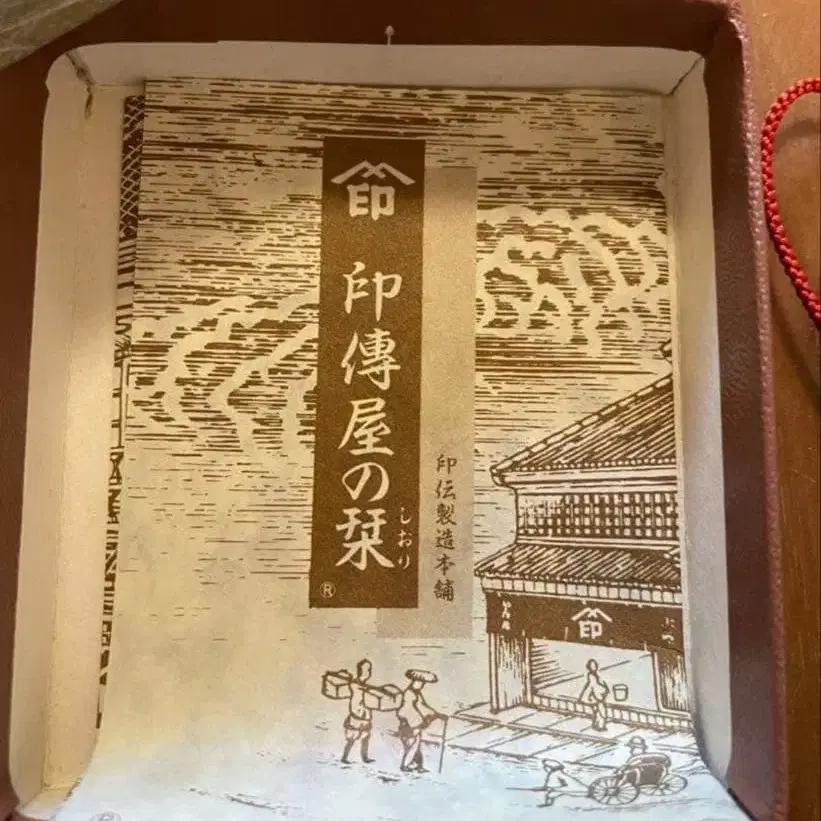 印
印傳屋の栞
しおり
®
印伝製造本舗
印
®